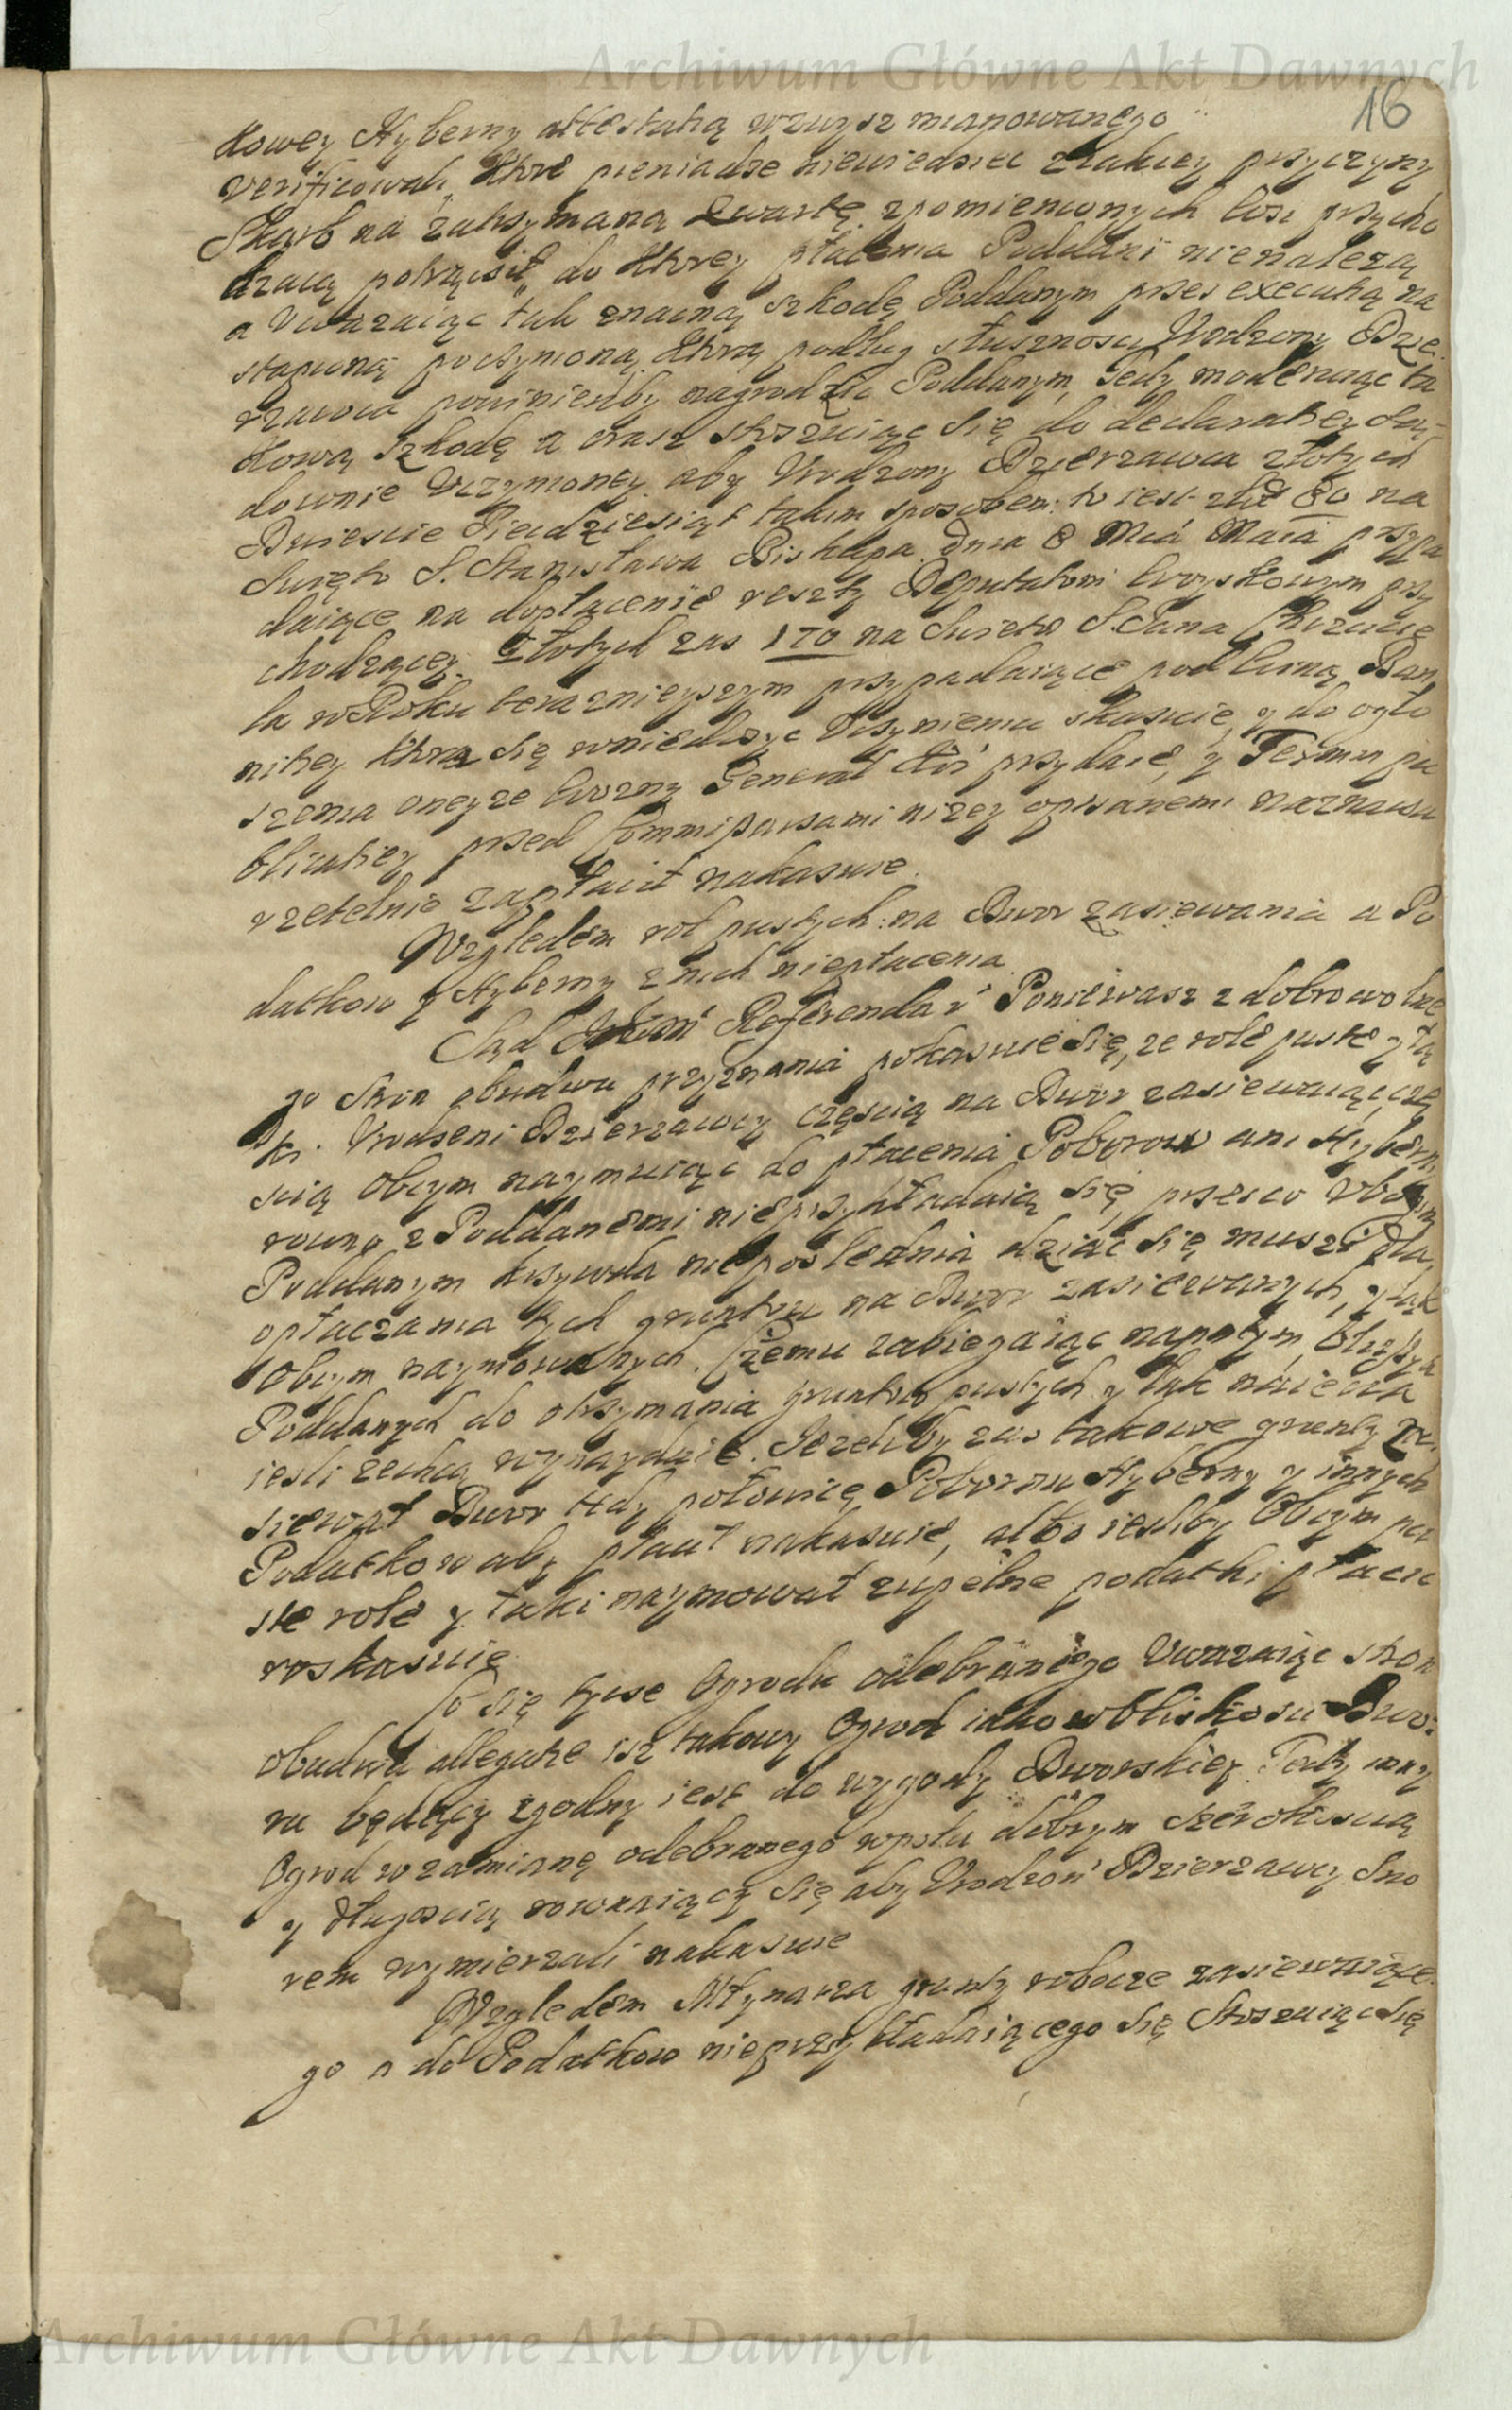 Archiwum Główne Akt Dawnych
16
kowey Hyberny attestatią wzwysz mianowanego
verificowali, ktore pieniadze niewiedziec z iakiey przyczyny
Skarb na zatrzymaną kwartę zpomienionych wsi przycho
dzącą potrącił, do ktorey płacenia Poddani nienalezą
a Uwazaiąc tak znaczną szkodę Poddanym przez executią na
stąpioną poczynioną, ktorą podług słusznosci Urodzony Dzie
rzawca powinienby nagrodzic Poddanym, Tedy moderuiąc ta
kową szkodę a oraz stosuiąc się do declaratiey Są
downie Uczynioney aby Urodzony Dzierzawca złotych
Dwiescie Piecdziesiąt takim sposobem: to iest złł 80 na
Swięto S. Stanisława Biskupa dnia 8 Mca Maia przypa
daiące na dopłacenie reszty Deputatowi woyskowym przy
chodzącey. Złotych zas 170 na Swieto S. Jana Chrzcicie
la w Roku teraznieyszym przypadaiące pod winą Ban
nitiey ktora się wniedosyc Uczynieniu skazuie, y do ogło
szenia oneyze wozny Generał kts przydaie, y Termin pu
blicatiey przed Commissarsami nizey opisanemi naznacza
rzetelnie zapłacił nakazuie.
Względem rol pustych na Dwor zasiewania a Po
datkow y Hyberny z nich niepłacenia.
Sąd Referendar Poniewasz z dobrowolne
go Stron obudwu przyznania pokazuie się, ze role puste y łą
ki Urodzeni Dzierzawcy częscią na Dwor zasiewaiąc, czę
scią obcym naymuiąc do płacenia Poborow ani Hyberny
rowno z Poddanemi nieprzykładaią się, przez co Ubogim
Poddanym krzywda nieposlednia dziac się musi dla
opłaczania tych gruntow na Dwor zasiewanych, y łąk
Obcym naymowanych. Czemu zabiegaiąc napotym, blizszych
Poddanych do otrzymania gruntow pustych y łąk naiecia
iesli zechcą wynayduie. Jezeliby zas takowe grunty za
siewał Dwor tedy połowicę Poborow Hyberny y innych
Podatkow aby płacił nakazuie, albo iesliby Obcym pu
ste role y łaki naymował zupełne podatki płacic
roskazuie.
Co się tycze Ogrodu odebranego Uwazaiąc stron
obudwu allegatie isz takowy Ogrod iako w bliskosci Dwo
ru będący zgodny iest do wygody Dworskiey. Tedy inny
Ogrod w zamianę odebranego wpolu dobrym szerokoscią
y długoscią rownaiący się aby Urodzon Dzierzawcy Sno
rem wymierzali nakazuie
Względem Młynarza grunty robocze zasiewaiące
go a do Podatkow nieprzykładaiącego się Stosuiąc się
Archiwum Główne Akt Dawnych